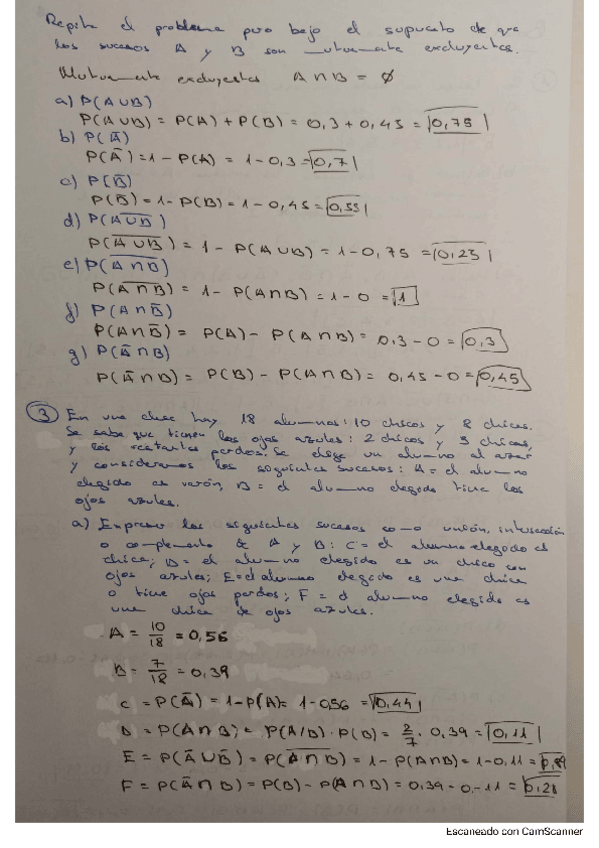 Repite el problema pero bajo el supuesto de que
los sucesos A y B son mutuamente excluyentes.
Mutuamente excluyentes A∩B = ∅
a) P(A∪B)
P(A∪B) = P(A) + P(B) = 0,3 + 0,45 = 0,75
b) P(Ā)
P(Ā) = 1 - P(A) = 1 - 0,3 = 0,7
c) P(B̄)
P(B̄) = 1 - P(B) = 1 - 0,45 = 0,55
d) P(A̅∪̅B̅)
P(A̅∪̅B̅) = 1 - P(A∪B) = 1 - 0,75 = 0,25
e) P(A̅∩̅B̅)
P(A̅∩̅B̅) = 1 - P(A∩B) = 1 - 0 = 1
f) P(A∩B̄)
P(A∩B̄) = P(A) - P(A∩B) = 0,3 - 0 = 0,3
g) P(Ā∩B)
P(Ā∩B) = P(B) - P(A∩B) = 0,45 - 0 = 0,45
3 En una clase hay 18 alumnos: 10 chicos y 8 chicas.
Se sabe que tienen los ojos azules: 2 chicos y 5 chicas,
y los restantes pardos. Se elige un alumno al azar
y consideramos los siguientes sucesos: A = el alumno
elegido es varón, B = el alumno elegido tiene los
ojos azules.
a) Expresar los siguientes sucesos como unión, intersección
o complemento de A y B: C = el alumno elegido es
chica; D = el alumno elegido es un chico con
ojos azules; E = el alumno elegido es una chica
o tiene ojos pardos; F = el alumno elegido es
una chica de ojos azules.
A = 10/18 = 0,56
B = 7/18 = 0,39
C = P(Ā) = 1 - P(A) = 1 - 0,56 = 0,44
D = P(A∩B) = P(A/B) · P(B) = 2/7 · 0,39 = 0,11
E = P(Ā∪B̄) = P(A̅∩̅B̅) = 1 - P(A∩B) = 1 - 0,11 = 0,89
F = P(Ā∩B) = P(B) - P(A∩B) = 0,39 - 0,11 = 0,28
Escaneado con CamScanner